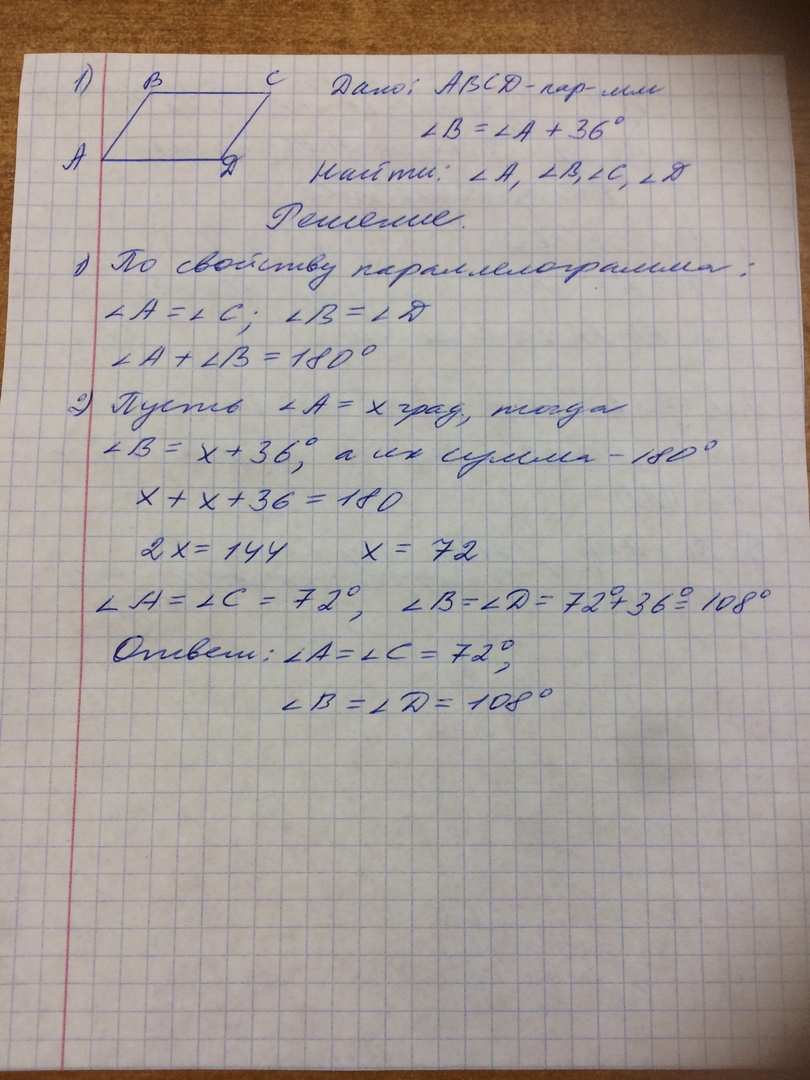 1)
B C
A D
Дано: ABCD-пар-мм
∠B = ∠A + 36°
Найти: ∠A, ∠B, ∠C, ∠D
Решение.
1) По свойству параллелограмма:
∠A = ∠C; ∠B = ∠D
∠A + ∠B = 180°
2) Пусть ∠A = x град, тогда
∠B = x + 36°, а их сумма - 180°
x + x + 36 = 180
2x = 144 x = 72
∠A = ∠C = 72°, ∠B = ∠D = 72°+36° = 108°
Ответ: ∠A = ∠C = 72°,
∠B = ∠D = 108°